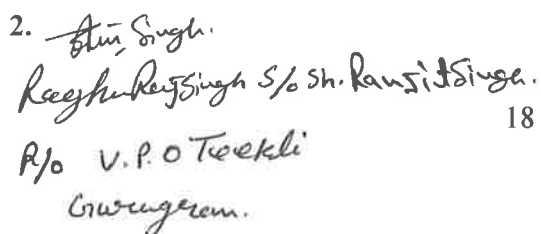 2. Singh.
Raghu Raj Singh S/o Sh. Ranjit Singh.
18
R/o V.P.O Teekli
Gurugram.